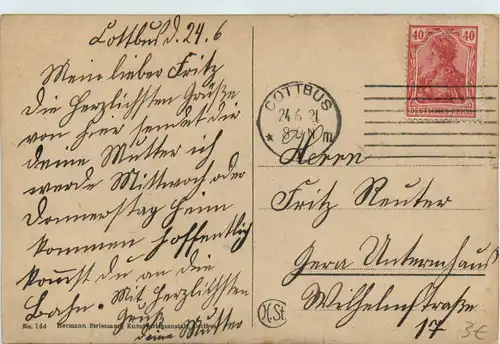 Cottbus d. 24.6
Mein lieber Fritz
die Herzlichsten Grüße
von hier sendet dir
deine Mutter ich
werde Mittwoch oder
Donnerstag heim
kommen hoffentlich
komst du an die
Bahn. Mit Herzlichsten
Gruß
deine Mutter
No. 144 Hermann Striesand, Kunstverlagsanstalt, Cottbus
40 40
DEUTSCHES REICH
COTTBUS
24.6.21
8-9 Nm
Herrn
Fritz Reuter
Gera Untermhaus
Wilhelmstraße
17
H.St.
3€